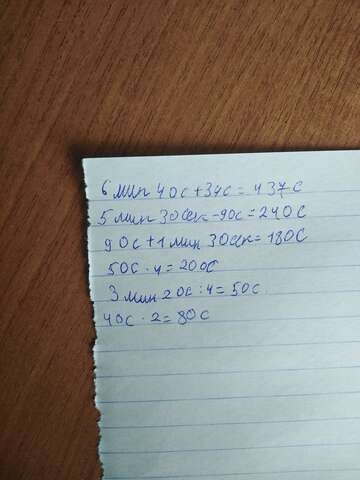 6 мин 40с + 34с = 437с
5 мин 30сек - 90с = 240с
90с + 1 мин 30сек = 180с
50с · 4 = 200с
3 мин 20с : 4 = 50с
40с · 2 = 80с